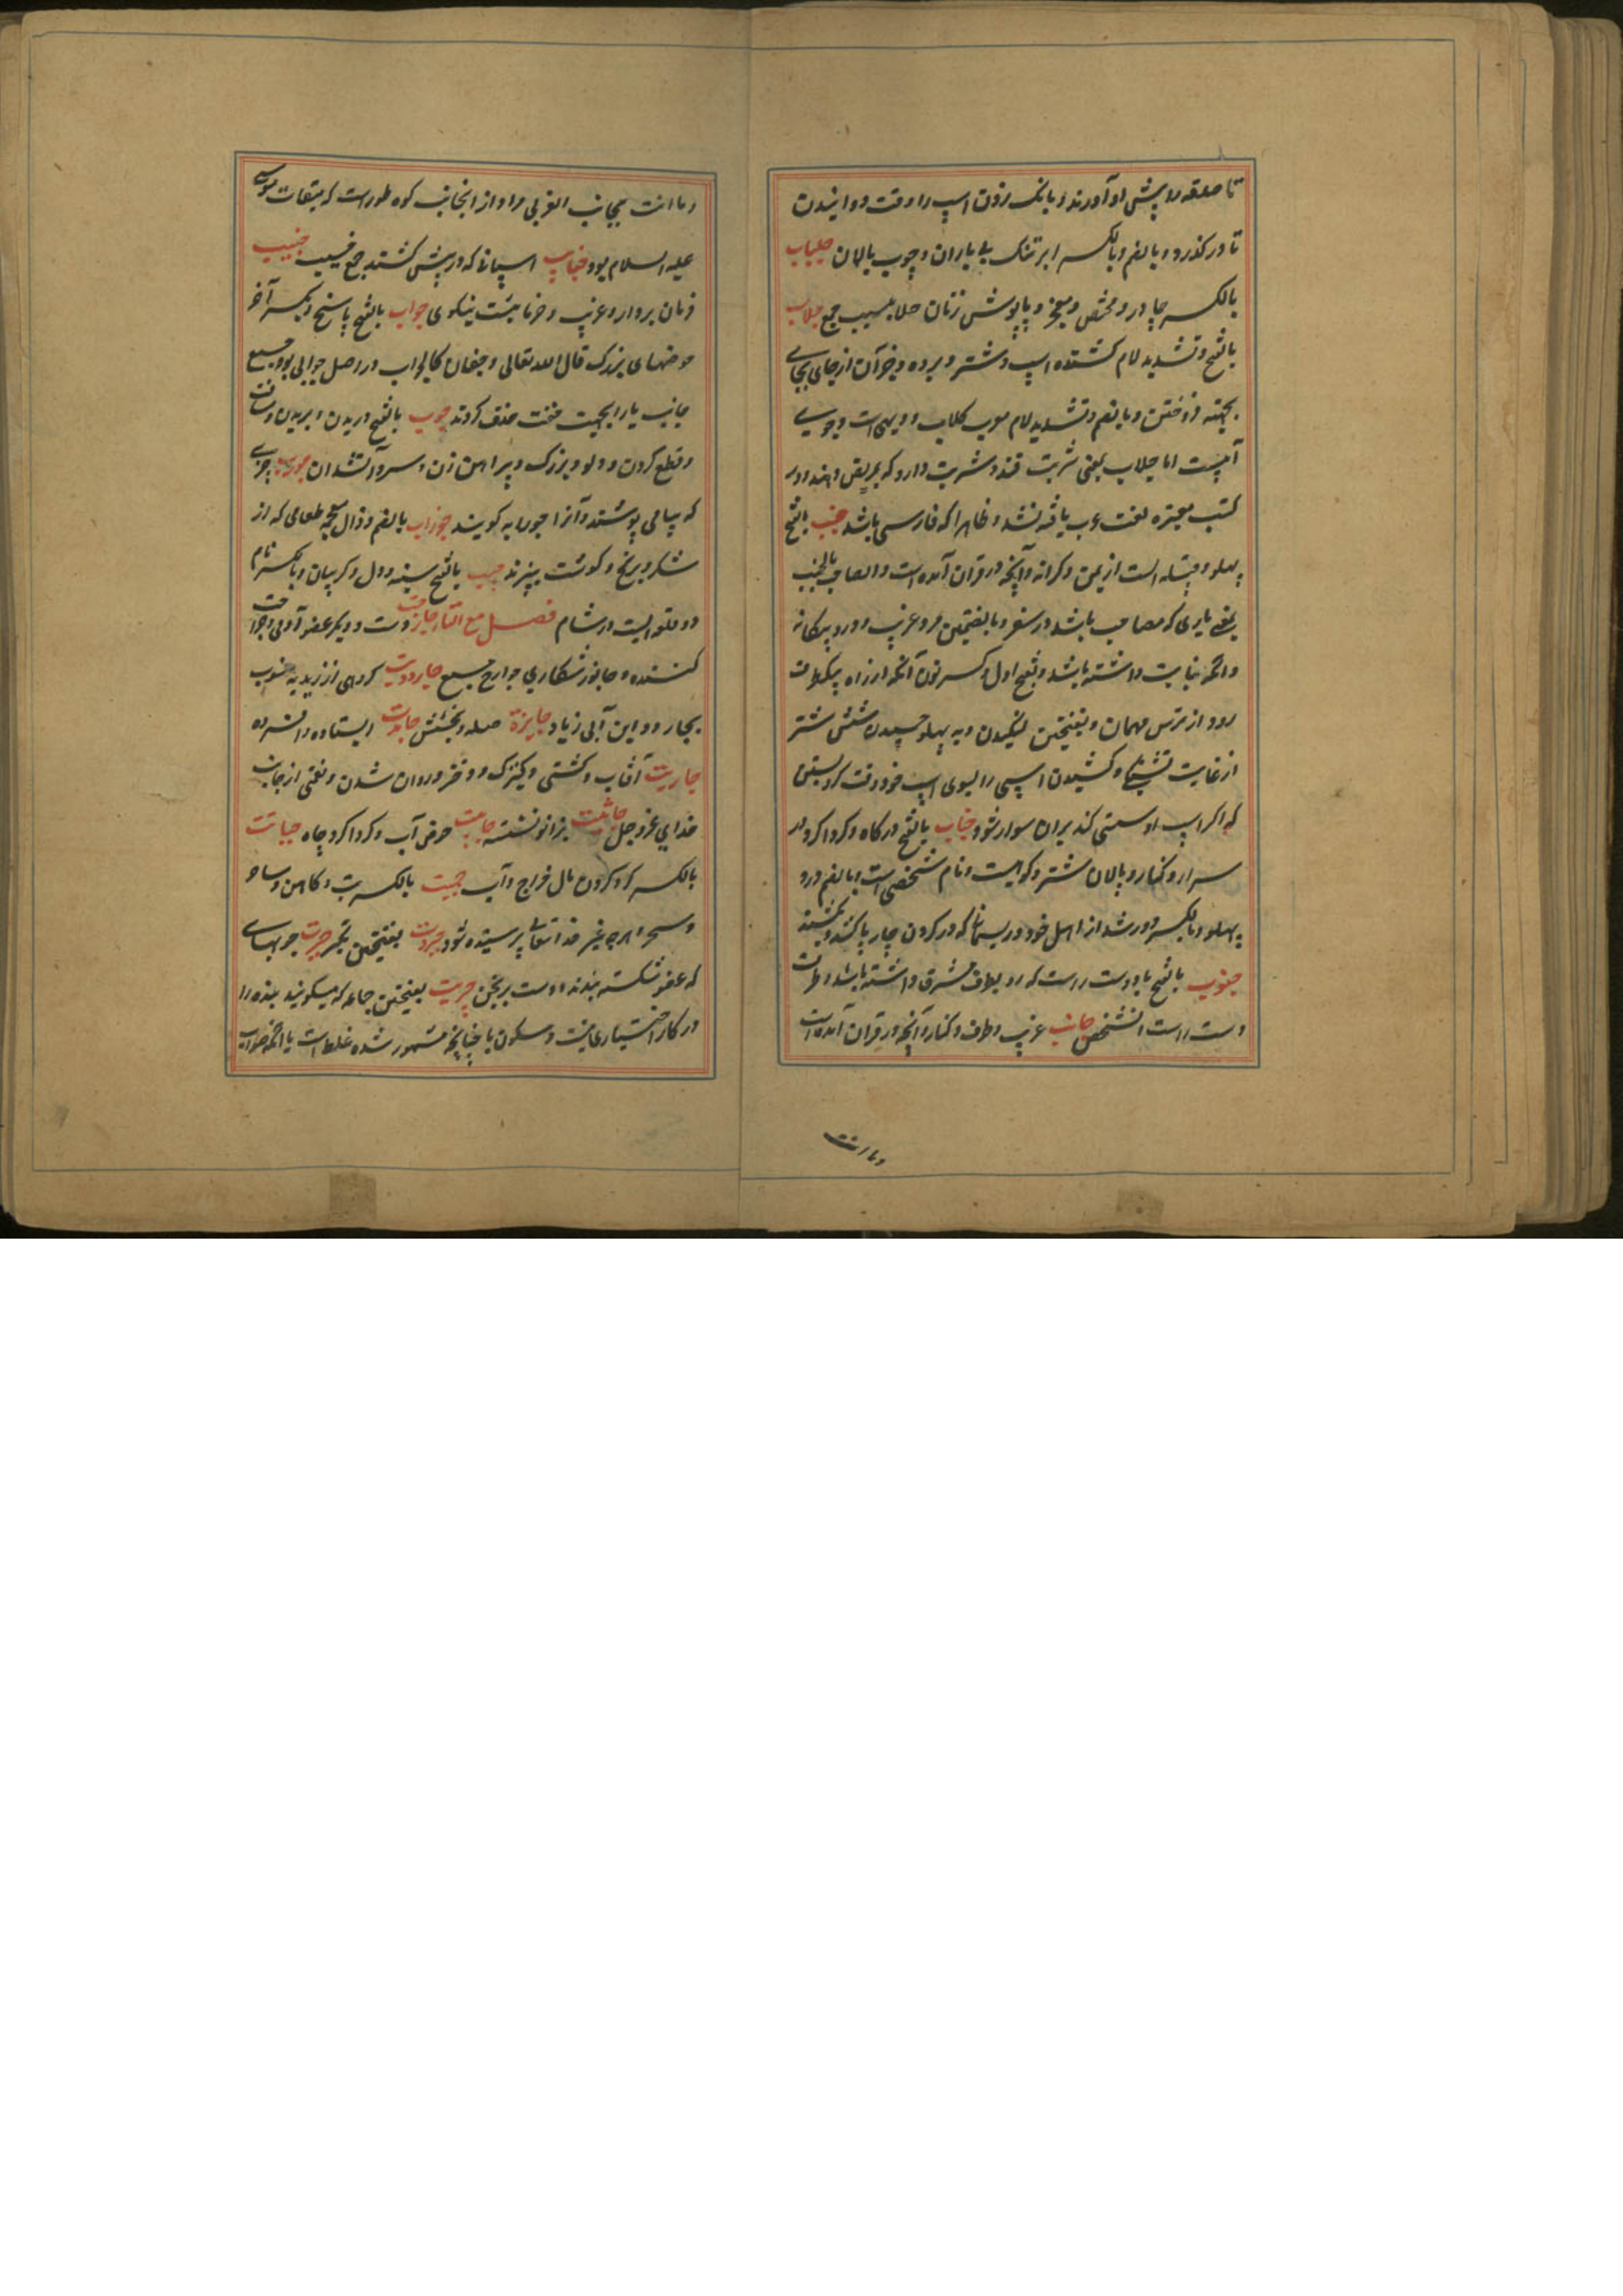 تا صدقه را پیش او آورند و بانک زدن اسپ را وقت دوانیدن
تا در کذرد و بالضم و بالکسر ابر تنک بی باران و چوب پالان جلباب
بالکسر چادر و معجز و پاپوش زنان جلابیب جمع جلاب
بالفتح و تشدید لام کشنده اسپ و شتر و برده و جز آن از جای بجای
بجهته فروختن و بالضم و تشدید لام معرب کلاب و دیهی است و جویی
آمیست اما جلاب بمعنی شربت قند و شربت دارو که بمریض دهند در
کتب معتبره لغت عرب یافته نشد و ظاهرا که فارسی باشد جنب بالفتح
پهلو و قبیله است از یمن و کرانه و آنچه در قرآن آمده است والصاحب بالجنب
یعنی یاری که مصاحب باشد در سفر و بالضمتین مرد غریب و دور و بیکانه
و آنکه جنابت داشته باشد و بفتح اول و کسر نون آنکه از راه یکطرف
رود از ترس مهمان و بفتحتین لنکیدن و به پهلو چسپیدن شش شتر
از غایت تشنکی و کشیدن اسپی را بسوی اسپ خود وقت کرو بستن
که اکر اسپ او سستی کند بران سوار شود جناب بالفتح درکاه و کرداکرد
سرا و کنار و پالان شتر و کوهیست و نام شخصی است و بالضم درد
پهلو و بالکسر دور شدن از اهل خود و ریسمان که در کردن چارپا کنند و بکشند
جنوب بالفتح باد دست راست که رو بطرف مشرق داشته باشد و طرف
دست راست آنشخص جانب غریب و طرف و کنار و آنچه در قرآن آمده است
و ما کنت
و ما کنت بجانب الغربی مراد از آنجانب کوه طور است که میقات موسی
علیه السلام بود جنایب اسپانی که در پیش کشند جمع جنیب جنیب
فرمان بردار و غریب و خرما جواب بالفتح پاسخ و بکسر آخر
حوضهای بزرک قال الله تعالی و جفان کالجواب در اصل جوابی بود جمع
جابیه یا را بجهت خفت حذف کردند جوب بالفتح دریدن و بریدن و مسافت
و قطع کردن و دلو بزرک و پیراهن زن و سپر و آتشدان جورب چیزی
که بپا می پوشند و آنرا جورابه کویند جوذاب بالضم و ذال معجمه طعامی که از
شکر و برنج و کوشت پزند جیب بالفتح سینه و دل و کریبان و بالکسر نام
دو قلعه ایست در شام فصل مع التاء جارحت دست و دیکر عضو آدمی و جراحت
کننده و جانور شکاری جوارح جمع جارودیت کروهی از زیدیه منسوب
بجارود ابن ابی زیاد جایزة صله و بخشش جامدت ایستاده و افسرده
جاریت آفتاب و کشتی و کنیزک و دختر و روان شدن و نعمتی از جانب
خدای عز و جل جاثیت بزانو نشسته جابیت حوض آب و کرداکرد چاه جبایت
بالکسر کرد کردن مال خراج و آب جبت بالکسر بت و کاهن و ساحر
و سحر و هر چه غیر خدا تعالی پرستیده شود جبروت بفتحتین تکبر جبیرت چوبهای
که عضو شکسته بندند و دست برنجن جبریت بفتحتین جماعه که میکویند بنده را
در کار اختیار نیست و سکون با چنانچه مشهور شده غلط است یا آنکه صواب